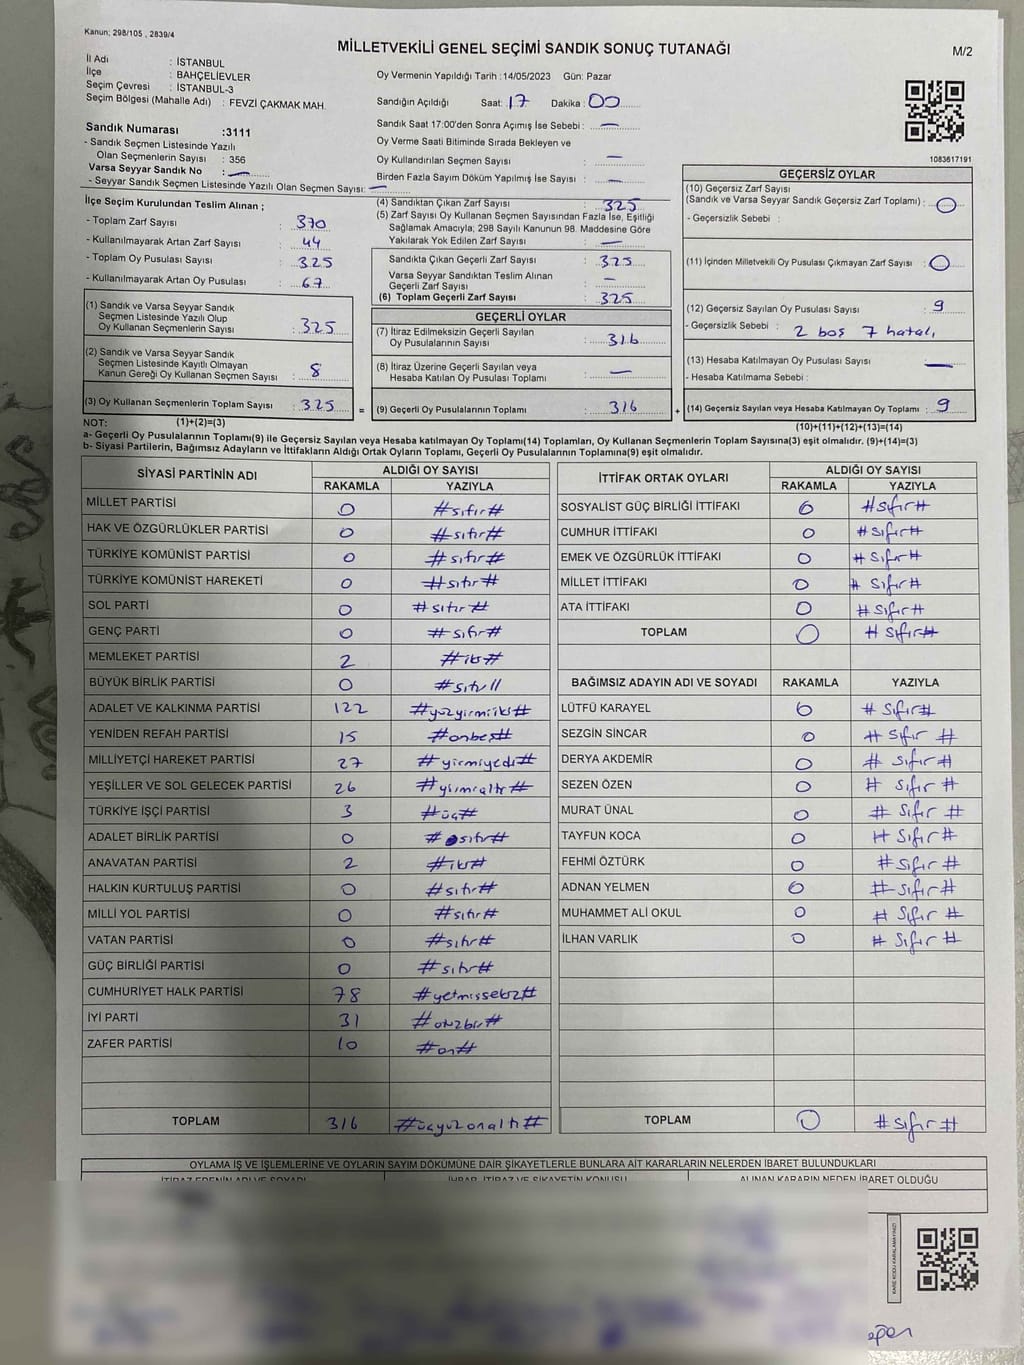 Kanun; 298/105 , 2839/4
MİLLETVEKİLİ GENEL SEÇİMİ SANDIK SONUÇ TUTANAĞI
M/2
İl Adı : İSTANBUL
İlçe : BAHÇELİEVLER
Seçim Çevresi : İSTANBUL-3
Seçim Bölgesi (Mahalle Adı) : FEVZİ ÇAKMAK MAH.
Oy Vermenin Yapıldığı Tarih : 14/05/2023 Gün: Pazar
Sandığın Açıldığı Saat: 17 Dakika : 00
Sandık Saat 17:00'den Sonra Açımış İse Sebebi : —
Oy Verme Saati Bitiminde Sırada Bekleyen ve
Oy Kullandırılan Seçmen Sayısı : —
Birden Fazla Sayım Döküm Yapılmış İse Sayısı : —
Sandık Numarası :3111
- Sandık Seçmen Listesinde Yazılı
Olan Seçmenlerin Sayısı : 356
Varsa Seyyar Sandık No : —
- Seyyar Sandık Seçmen Listesinde Yazılı Olan Seçmen Sayısı: —
1083617191
İlçe Seçim Kurulundan Teslim Alınan ;
- Toplam Zarf Sayısı : 370
- Kullanılmayarak Artan Zarf Sayısı : 44
- Toplam Oy Pusulası Sayısı : 325
- Kullanılmayarak Artan Oy Pusulası : 67
(1) Sandık ve Varsa Seyyar Sandık
Seçmen Listesinde Yazılı Olup
Oy Kullanan Seçmenlerin Sayısı : 325
(2) Sandık ve Varsa Seyyar Sandık
Seçmen Listesinde Kayıtlı Olmayan
Kanun Gereği Oy Kullanan Seçmen Sayısı : 8
(3) Oy Kullanan Seçmenlerin Toplam Sayısı : 325
(4) Sandıktan Çıkan Zarf Sayısı : 325
(5) Zarf Sayısı Oy Kullanan Seçmen Sayısından Fazla İse, Eşitliği
Sağlamak Amacıyla; 298 Sayılı Kanunun 98. Maddesine Göre
Yakılarak Yok Edilen Zarf Sayısı : —
Sandıkta Çıkan Geçerli Zarf Sayısı : 325
Varsa Seyyar Sandıktan Teslim Alınan
Geçerli Zarf Sayısı : —
(6) Toplam Geçerli Zarf Sayısı : 325
GEÇERLİ OYLAR
(7) İtiraz Edilmeksizin Geçerli Sayılan
Oy Pusulalarının Sayısı : 316
(8) İtiraz Üzerine Geçerli Sayılan veya
Hesaba Katılan Oy Pusulası Toplamı : —
= (9) Geçerli Oy Pusulalarının Toplamı : 316
GEÇERSİZ OYLAR
(10) Geçersiz Zarf Sayısı
(Sandık ve Varsa Seyyar Sandık Geçersiz Zarf Toplamı) : 0
- Geçersizlik Sebebi :
(11) İçinden Milletvekili Oy Pusulası Çıkmayan Zarf Sayısı : 0
(12) Geçersiz Sayılan Oy Pusulası Sayısı : 9
- Geçersizlik Sebebi : 2 boş 7 hatalı
(13) Hesaba Katılmayan Oy Pusulası Sayısı : —
- Hesaba Katılmama Sebebi :
+ (14) Geçersiz Sayılan veya Hesaba Katılmayan Oy Toplamı : 9
NOT: (1)+(2)=(3)
(10)+(11)+(12)+(13)=(14)
a- Geçerli Oy Pusulalarının Toplamı(9) ile Geçersiz Sayılan veya Hesaba katılmayan Oy Toplamı(14) Toplamları, Oy Kullanan Seçmenlerin Toplam Sayısına(3) eşit olmalıdır. (9)+(14)=(3)
b- Siyasi Partilerin, Bağımsız Adayların ve İttifakların Aldığı Ortak Oyların Toplamı, Geçerli Oy Pusulalarının Toplamına(9) eşit olmalıdır.
SİYASİ PARTİNİN ADI ALDIĞI OY SAYISI
RAKAMLA YAZIYLA
MİLLET PARTİSİ 0 #sıfır#
HAK VE ÖZGÜRLÜKLER PARTİSİ 0 #sıfır#
TÜRKİYE KOMÜNİST PARTİSİ 0 #sıfır#
TÜRKİYE KOMÜNİST HAREKETİ 0 #sıfır#
SOL PARTİ 0 #sıfır#
GENÇ PARTİ 0 #sıfır#
MEMLEKET PARTİSİ 2 #iki#
BÜYÜK BİRLİK PARTİSİ 0 #sıfır//
ADALET VE KALKINMA PARTİSİ 122 #yüzyirmiiki#
YENİDEN REFAH PARTİSİ 15 #onbeş#
MİLLİYETÇİ HAREKET PARTİSİ 27 #yirmiyedi#
YEŞİLLER VE SOL GELECEK PARTİSİ 26 #yirmialtı#
TÜRKİYE İŞÇİ PARTİSİ 3 #üç#
ADALET BİRLİK PARTİSİ 0 #sıfır#
ANAVATAN PARTİSİ 2 #iki#
HALKIN KURTULUŞ PARTİSİ 0 #sıfır#
MİLLİ YOL PARTİSİ 0 #sıfır#
VATAN PARTİSİ 0 #sıfır#
GÜÇ BİRLİĞİ PARTİSİ 0 #sıfır#
CUMHURİYET HALK PARTİSİ 78 #yetmişsekiz#
İYİ PARTİ 31 #otuzbir#
ZAFER PARTİSİ 10 #on#
TOPLAM 316 #üçyüzonaltı#
İTTİFAK ORTAK OYLARI ALDIĞI OY SAYISI
RAKAMLA YAZIYLA
SOSYALİST GÜÇ BİRLİĞİ İTTİFAKI 0 #sıfır#
CUMHUR İTTİFAKI 0 #sıfır#
EMEK VE ÖZGÜRLÜK İTTİFAKI 0 #sıfır#
MİLLET İTTİFAKI 0 #sıfır#
ATA İTTİFAKI 0 #sıfır#
TOPLAM 0 #sıfır#
BAĞIMSIZ ADAYIN ADI VE SOYADI RAKAMLA YAZIYLA
LÜTFÜ KARAYEL 0 #sıfır#
SEZGİN SİNCAR 0 #sıfır#
DERYA AKDEMİR 0 #sıfır#
SEZEN ÖZEN 0 #sıfır#
MURAT ÜNAL 0 #sıfır#
TAYFUN KOCA 0 #sıfır#
FEHMİ ÖZTÜRK 0 #sıfır#
ADNAN YELMEN 0 #sıfır#
MUHAMMET ALİ OKUL 0 #sıfır#
İLHAN VARLIK 0 #sıfır#
TOPLAM 0 #sıfır#
OYLAMA İŞ VE İŞLEMLERİNE VE OYLARIN SAYIM DÖKÜMÜNE DAİR ŞİKAYETLERLE BUNLARA AİT KARARLARIN NELERDEN İBARET BULUNDUKLARI
İTİRAZ EDENİN ADI VE SOYADI İHBAR, İTİRAZ VE ŞİKAYETİN KONUSU ALINAN KARARIN NEDEN İBARET OLDUĞU
KARE KODU KARALAMAYINIZ!